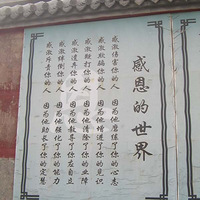 感恩的世界
感激伤害你的人 因为他磨练了你的心志
感激欺骗你的人 因为他增进了你的见识
感激鞭打你的人 因为他消除了你的业障
感激遗弃你的人 因为他教导了你应自立
感激绊倒你的人 因为他强化了你的能力
感激斥责你的人 因为他助长了你的定慧